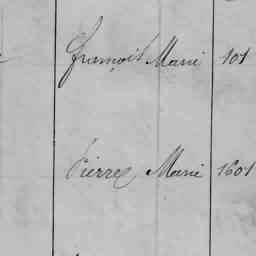 françois Marie 101
Pierre Marie 1601